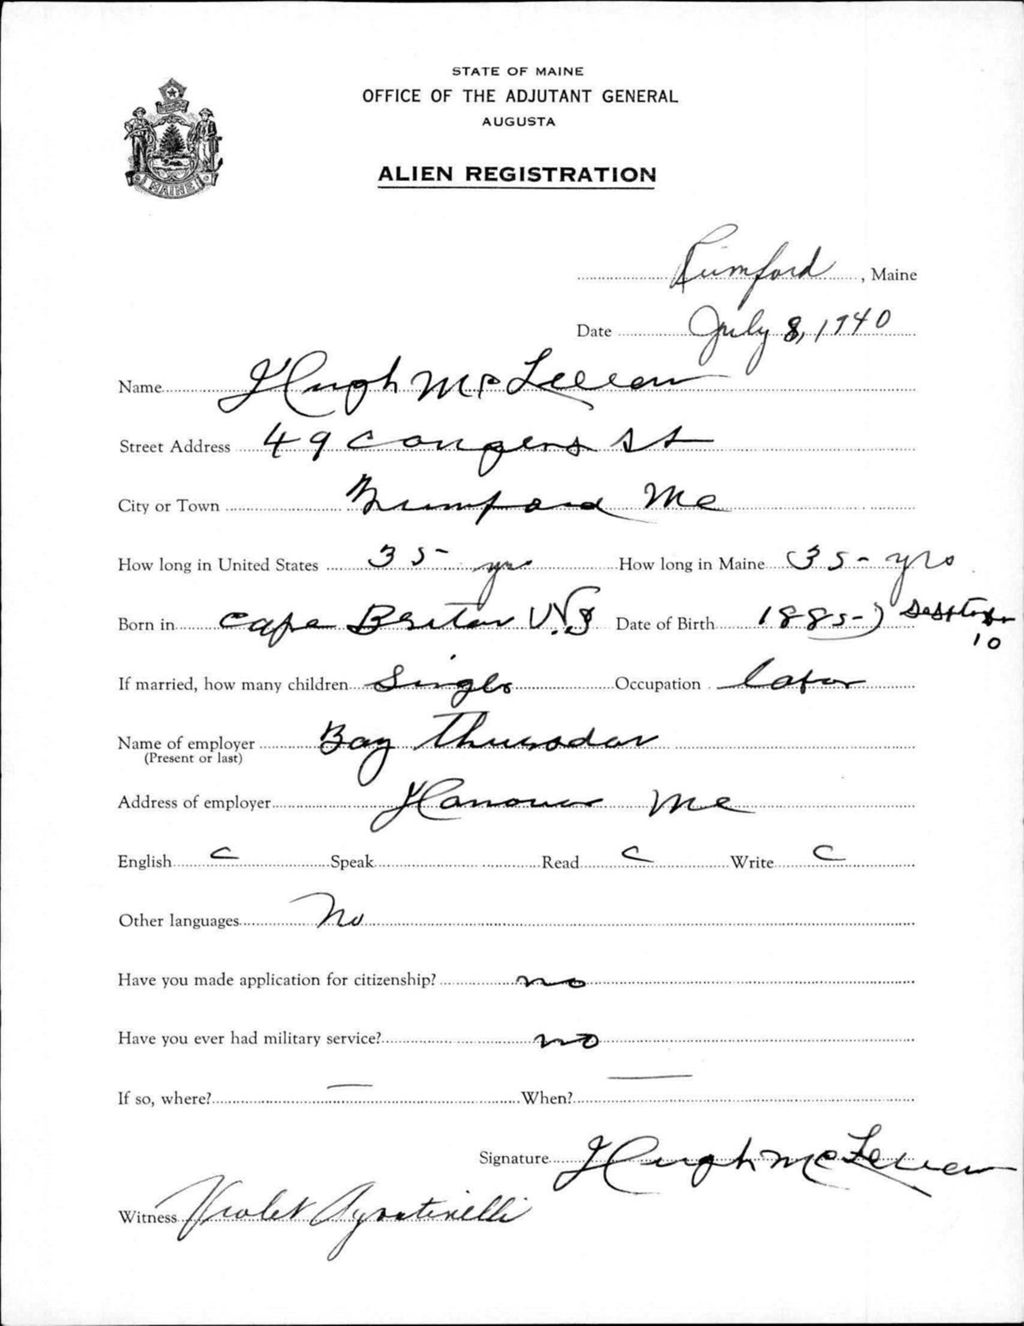 STATE OF MAINE
OFFICE OF THE ADJUTANT GENERAL
AUGUSTA
ALIEN REGISTRATION
MAINE
Rumford, Maine
Date July 8, 1940
Name Hugh Mc Lellan
Street Address 49 Congers St
City or Town Rumford Me
How long in United States 35 yrs How long in Maine 35 - yrs
Born in Cape Briton Date of Birth 1885
10
If married, how many children Single Occupation labor
Name of employer Bay
(Present or last)
Address of employer Hanover Me
English C Speak Read C Write C
Other languages No
Have you made application for citizenship? no
Have you ever had military service? no
If so, where? — When? —
Signature Hugh Mc Lellan
Witness Violet